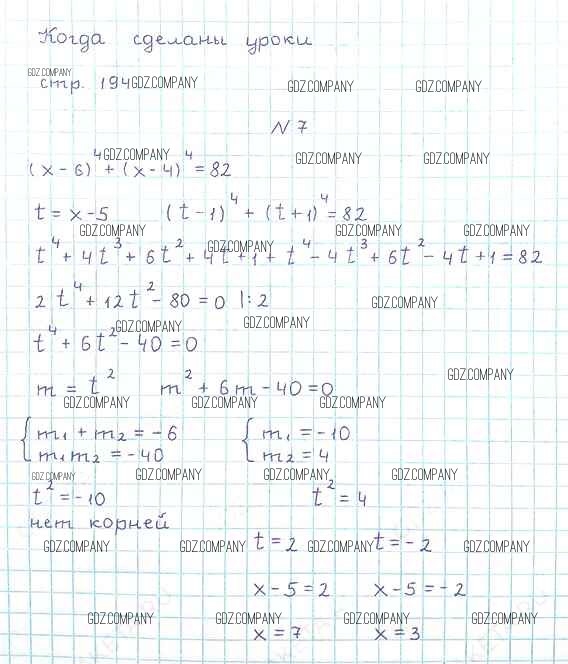 Когда сделаны уроки
GDZ.COMPANY
стр. 194 GDZ.COMPANY GDZ.COMPANY GDZ.COMPANY
N 7
GDZ.COMPANY GDZ.COMPANY GDZ.COMPANY
(x-6)⁴ + (x-4)⁴ = 82
t = x-5 (t-1)⁴ + (t+1)⁴ = 82
GDZ.COMPANY GDZ.COMPANY GDZ.COMPANY
GDZ.COMPANY
t⁴ + 4t³ + 6t² + 4t + 1 + t⁴ - 4t³ + 6t² - 4t + 1 = 82
2t⁴ + 12t² - 80 = 0 |: 2 GDZ.COMPANY
GDZ.COMPANY GDZ.COMPANY
t⁴ + 6t² - 40 = 0
GDZ.COMPANY
m = t² m² + 6m - 40 = 0
GDZ.COMPANY GDZ.COMPANY GDZ.COMPANY
{ m₁ + m₂ = -6 { m₁ = -10
m₁m₂ = -40 m₂ = 4
GDZ.COMPANY GDZ.COMPANY GDZ.COMPANY GDZ.COMPANY
t² = -10 t² = 4
нет корней
GDZ.COMPANY GDZ.COMPANY t = 2 GDZ.COMPANY t = -2 GDZ.COMPANY
x-5 = 2 x-5 = -2
GDZ.COMPANY GDZ.COMPANY GDZ.COMPANY GDZ.COMPANY
x = 7 x = 3